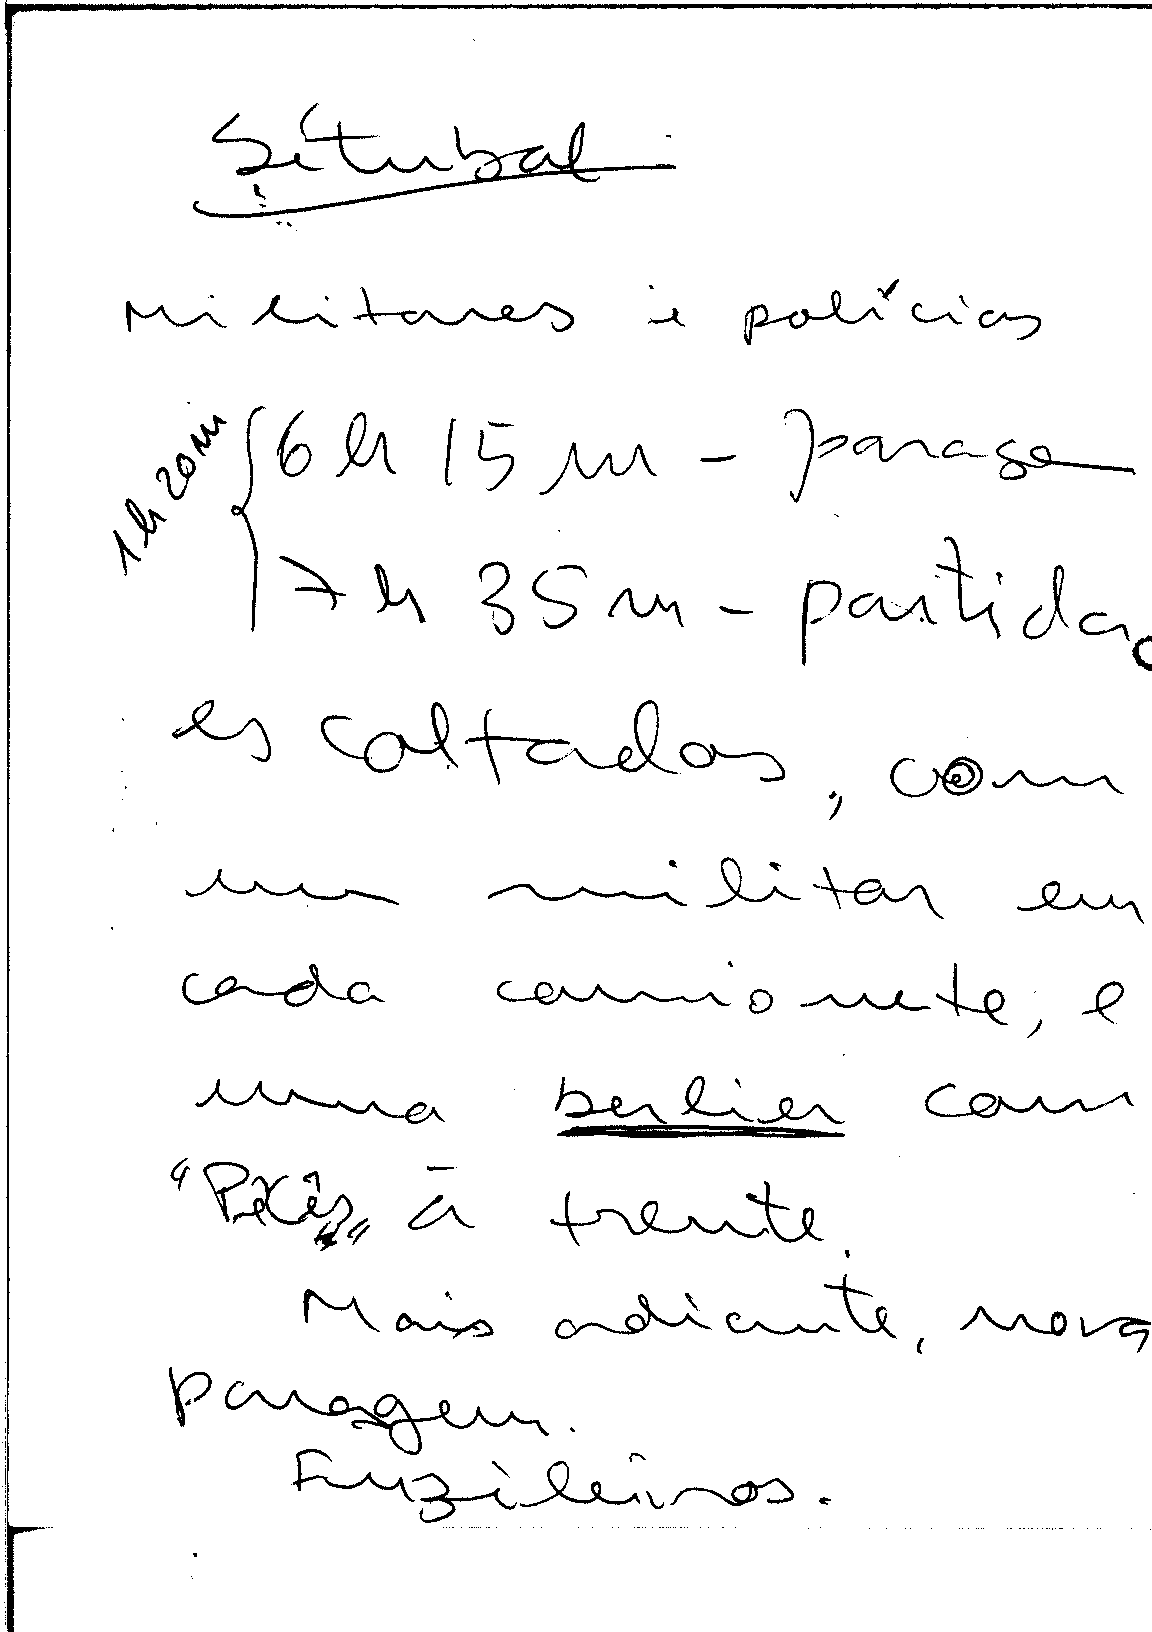 Sétubal
Militares e polícias
1h20m
6h15m - paragem
7h35m - partida,
escoltados, com
um militar em
cada camionete, e
uma berlier com
à frente.
Mais adiante, nova
paragem.
Fuzileiros.